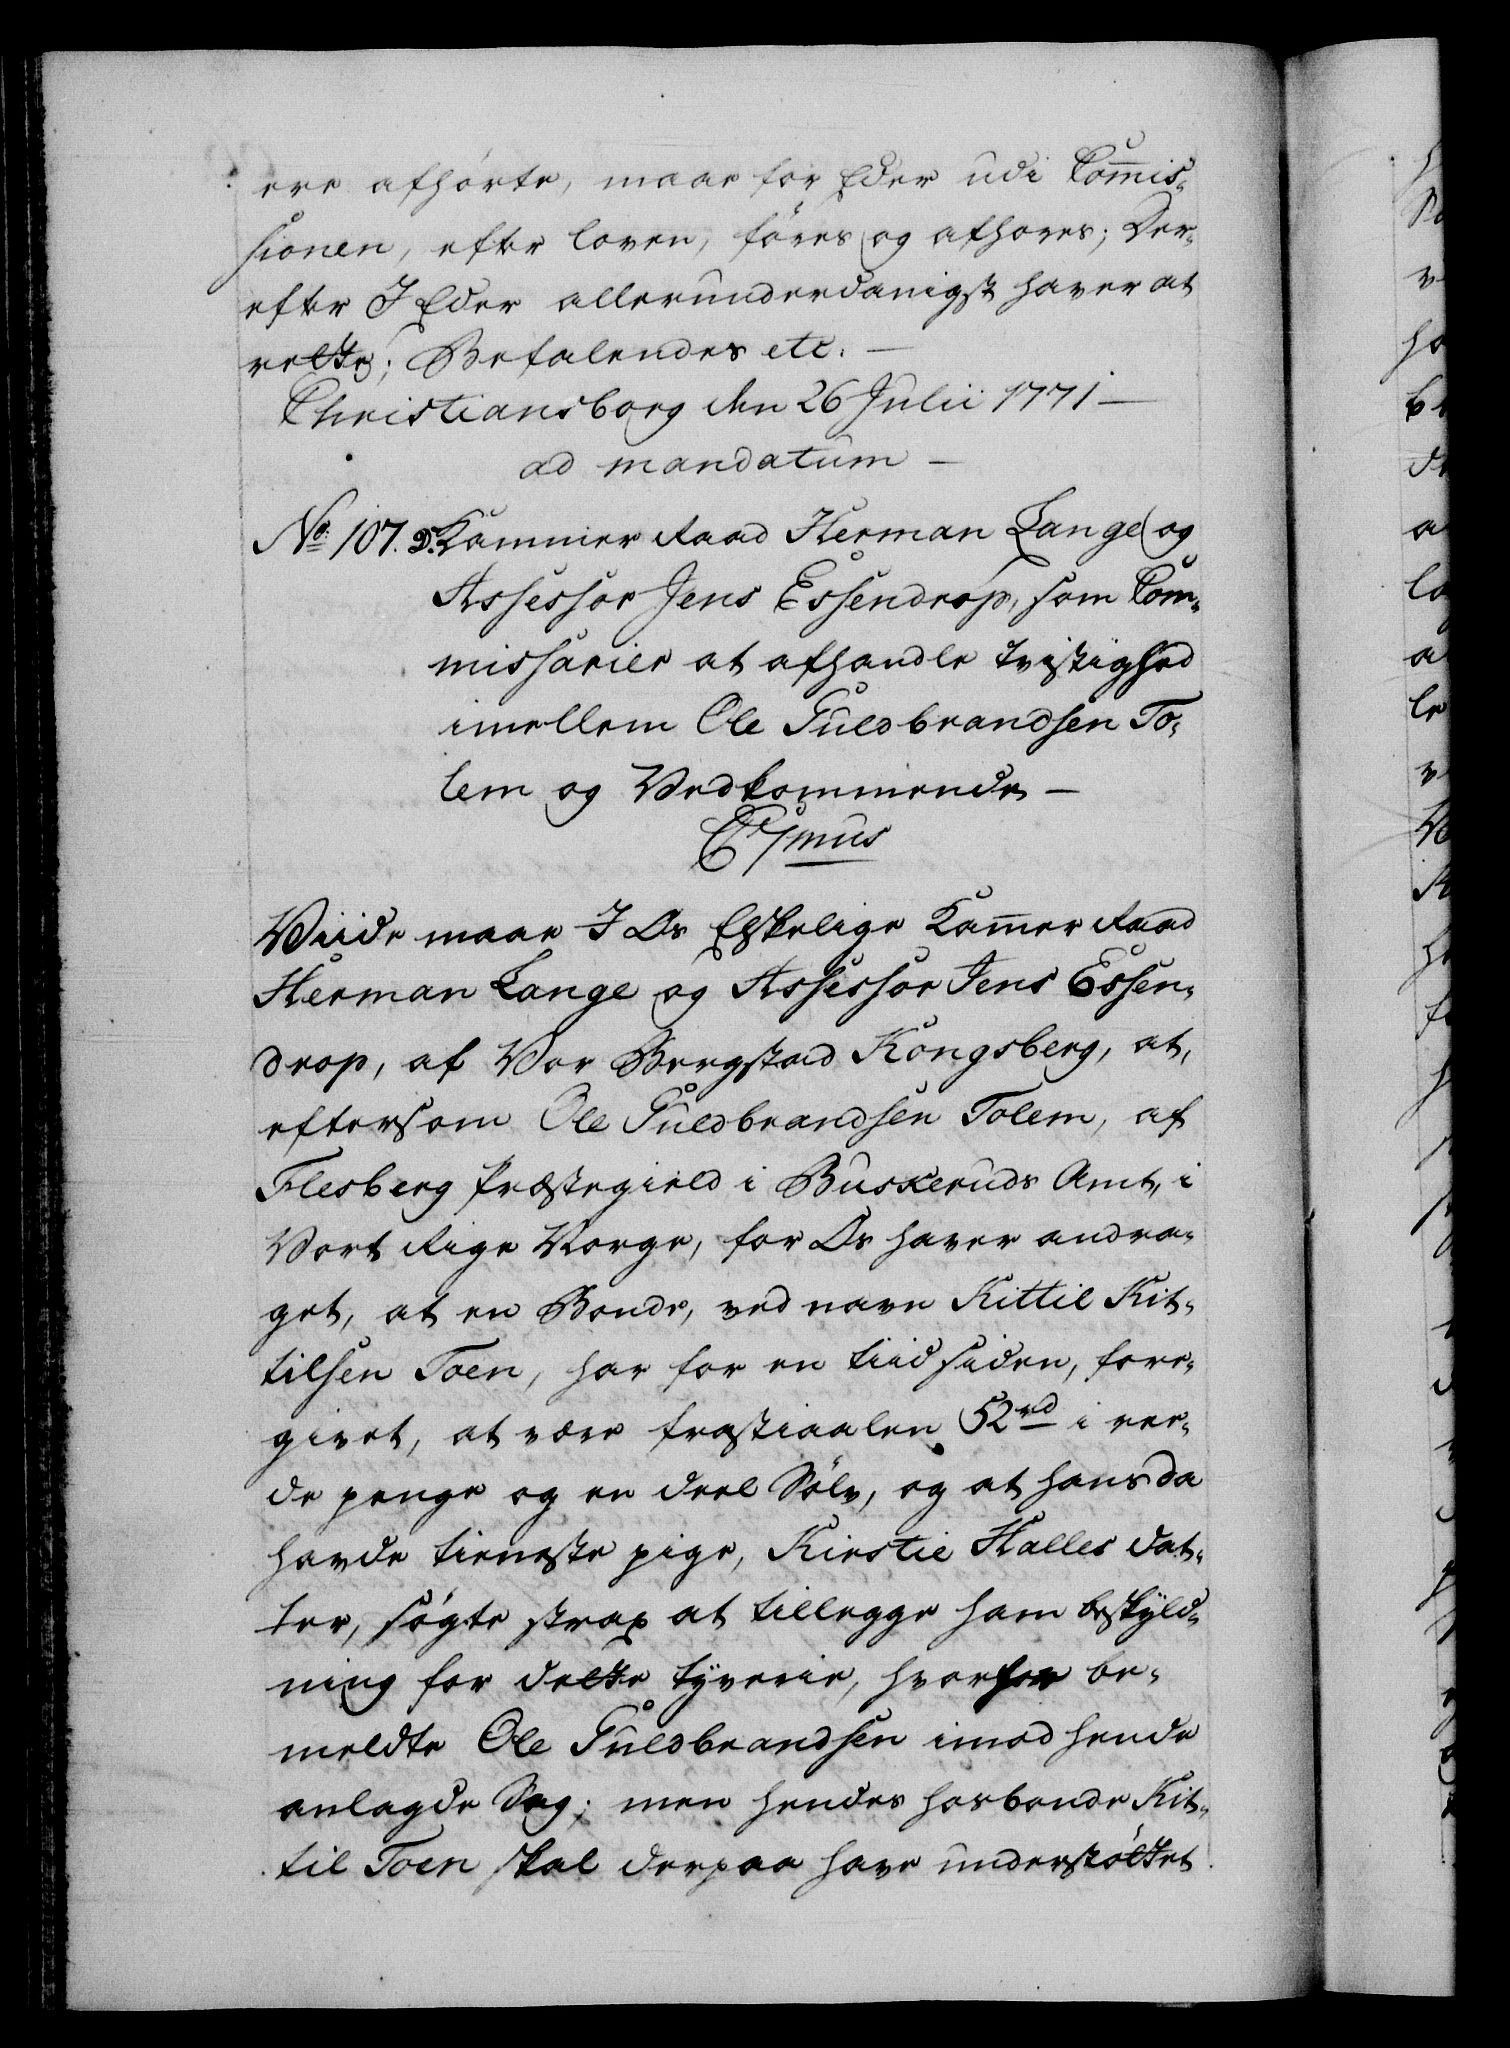 ere afhørte, maae for Eder udi Com̅is-
sionen, efter loven, føres og afhøres; Der-
efter I Eder allerunderdanigst haver at
rette; Befalendes etc. —
Christiansborg den 26 Julii 1771 —
ad mandatum —
No. 107. Kammer Raad Herman Lange og
Assessor Jens Essendrop, som Com-
missarier at afhandle tvistighed
imellem Ole Guldbrandsen To-
lem og Vedkommende —
C7mus
Viide maae I Os Elskelige Kam̅er Raad
Herman Lange og Assessor Jens Essen-
drop, af Vor Bergstad Kongsberg, at,
eftersom Ole Guldbrandsen Tolem, af
Flesberg Præstegield i Buskeruds Amt, i
Vort Rige Norge, for Os haver andra-
get, at en Bonde, ved navn Kittil Kit-
tilsen Toen, har for en tiid siden, fore-
givet, at være frastiaalen 52 rd i ree-
de penge og en deel Sølv, og at hans da
havde tieneste pige, Kirstie Halles dat-
ter, søgte strax at tillegge ham beskyld-
ning for dette tyverie, hvorfor be-
meldte Ole Guldbrandsen imod hende
anlagde Sag; men hendes hosbonde Kit-
til Toen skal derpaa have understøttet